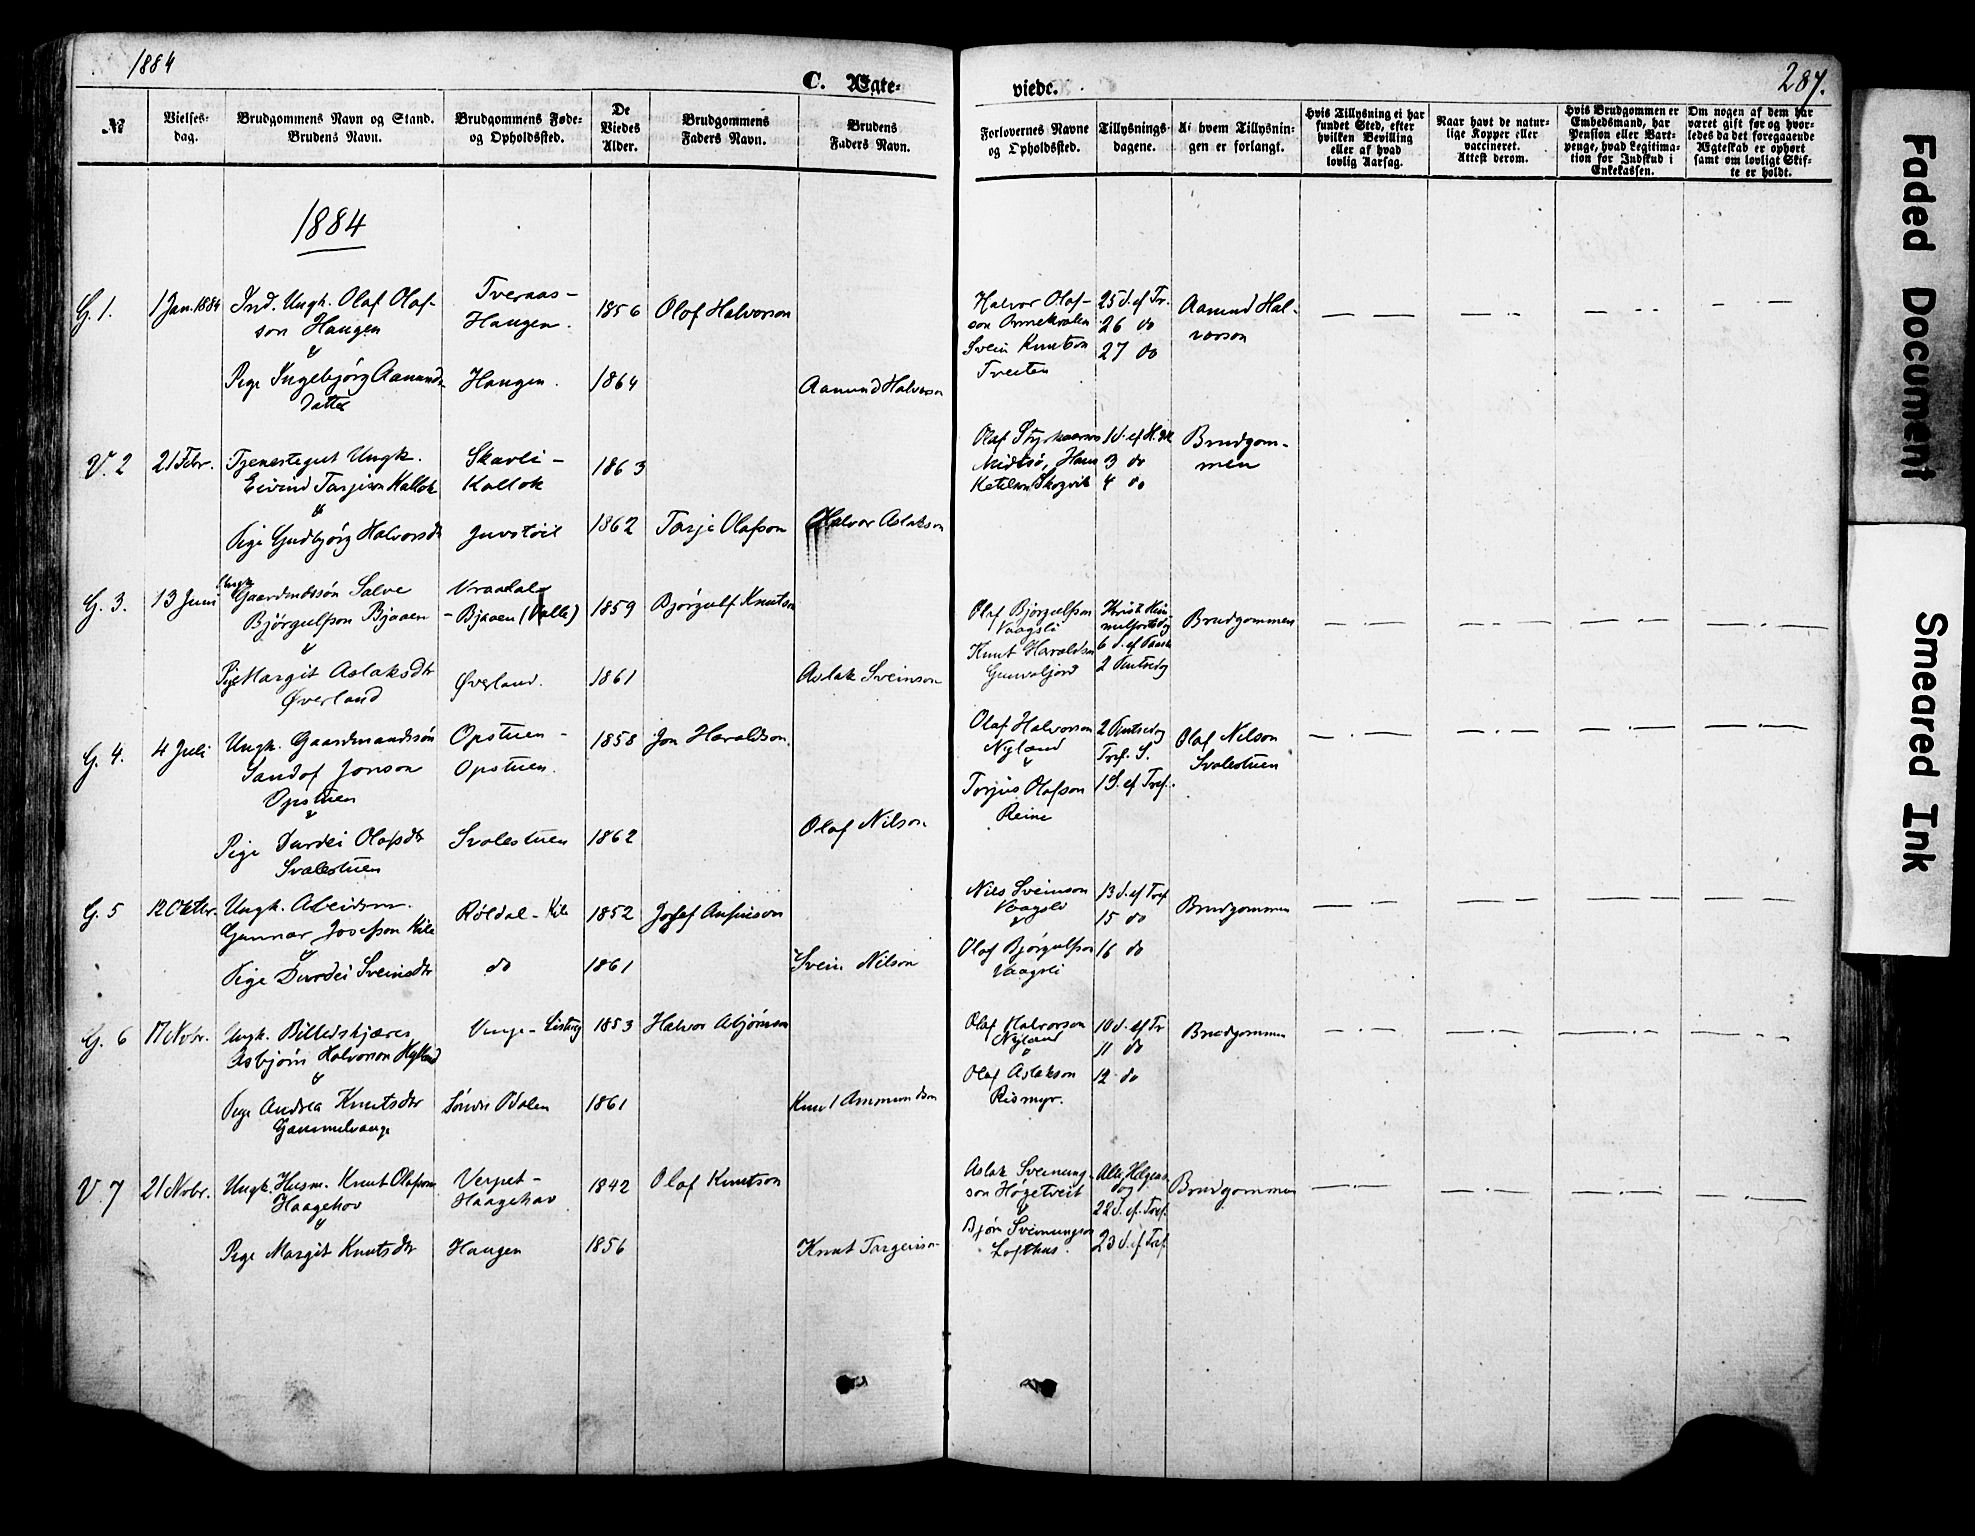 1884
C. Ægte-
viede.
287.
№
Vielses-
dag.
Brudgommens Navn og Stand.
Brudens Navn.
Brudgommens Føde-
og Opholdssted.
De
Viedes
Alder.
Brudgommens
Faders Navn.
Brudens
Faders Navn.
Forlovernes Navne
og Opholdssted.
Tillysnings-
dagene.
Af hvem Tillysnin-
gen er forlangt.
Hvis Tillysning ei har
fundet Sted, efter
hvilken Bevilling
eller af hvad
lovlig Aarsag.
Naar havt de natur-
lige Kopper eller
vaccineret.
Attest derom.
Hvis Brudgommen er
Embedsmand, har
Pension eller Vart-
penge, hvad Legitima-
tion for Indskud i
Enkekassen.
Om nogen af dem har
været gift før og hvor-
ledes da det foregaaende
Ægteskab er ophørt
samt om lovligt Skif-
te er holdt.
1884
G. 1.
1 Jan. 1884
Ind. Ungk. Olaf Olaf-
son Haugen
&
Pige Ingebjørg Aamunds
datter
Tveraas-
Haugen.
Haugen.
1856
1864
Olaf Halvorson
Aamund Halvorson
Halvor Olaf-
son
Svein Knutson
Tveiten
25 S. ef Tr.
26 do
27 do
Aamund Hal-
vorson
V. 2
21 Febr.
Tjenestegut Ungk.
Eivind Tarjeson Kallok
&
Pige Gudbjørg Halvorsdr
Skavli-
Kallok
Juvstøil
1863
1862
Tarje Olafson
Halvor Aslakson
Olaf
Midtbø, Hans
Ketilson Skogvik
1 S. ef H. 3 K
3 do
4 do
Brudgom-
men
G. 3.
13 Juni
Ungk
Gaardmdssøn Salve
Bjørgulfson Bjaaen
&
Pige Margit Aslaksdr
Øverland
Vraadal
-Bjaaen (Valle)
Øverland.
1859
1861
Bjørgulf Knutson
Aslak Sveinson
Olaf Bjørgulfson
Vaagsli
Knut Haraldson
Gunvaljord
Krist Him
melfartsdg
6 S. ef Paaske
2 Pintsedag
Brudgommen
G. 4.
4 Juli
Ungk. Gaardmandssøn
Sandof Jonson
Opstuen
&
Pige Durdei Olafsdr
Svalestuen
Opstuen-
Opstuen.
Svalestuen
1858
1862
Jon Haraldson.
Olaf Nilson
Olaf Halvorson
Nyland
&
Torjus Olafson
Reine
2 Pintsedag
Tref. S.
1 S. ef Tref.
Olaf Nilson
Svalestuen
G. 5
12 Oktbr.
Ungk. Arbeidsm.
Gunnar Josefson Kile
&
Pige Durdei Sveinsdr
Røldal-Kile
do
1852
1861
Josef Anfinson
Svein Nilson
Nils Sveinson
Vaagsli
&
Olaf Bjørgulfson
Vaagsli
13 S. ef Tref
15 do
16 do
Brudgommen
G. 6
17 Novbr.
Ungk. Billedskjærer
Asbjørn Halvorson
&
Pige Andrea Knutsdr
Gammelvange
Vinje-
Søndre Odalen
1853
1861
Halvor Asbjørnson
Knut Ammundson
Olaf Halvorson
Nyland
&
Olaf Aslakson
Rismyr.
10 S. ef Tr
11 do
12 do
Brudgommen
V. 7
21 Nobr.
Ungk. Husm. Knut Olafson
Haagehov
&
Pige Margit Knutsdr
Verpet-
Haagehov
Haugen
1842
1856
Olaf Knutson
Knut Targeirson
Aslak Sveinung-
son Høgetveit
&
Bjørn Sveinungson
Lofthus.
Alle Helgens
dag
22 S. ef. Tref.
23 S. ef Tref.
Brudgommen
Faded Document
Smeared Ink